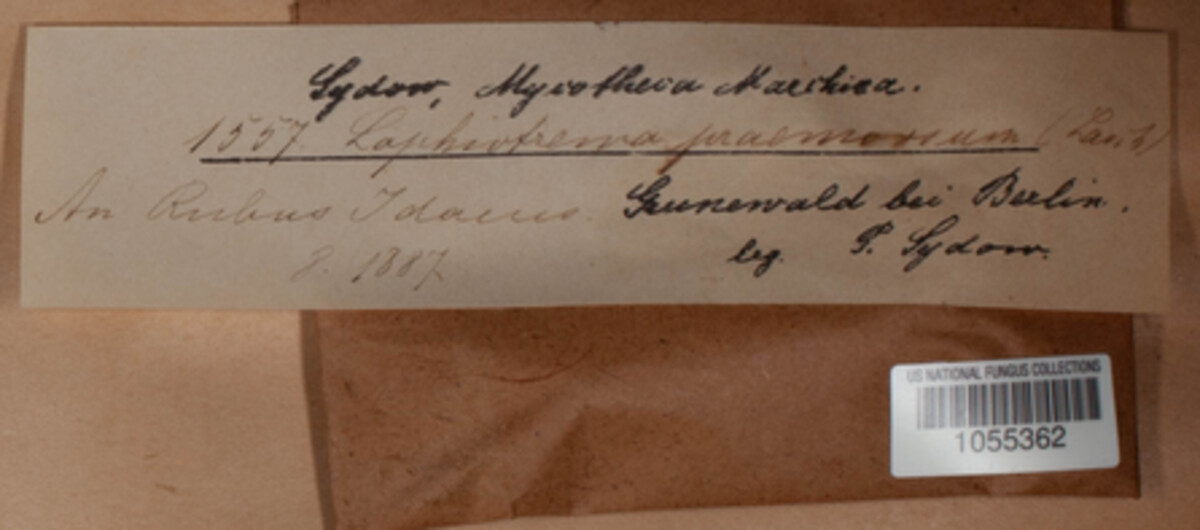 Sydow, Mycotheca Marchica.
1557. Lophiotrema praemorsum (Lasch)
An Rubus Idaeus. Grunewald bei Berlin.
8. 1887. leg. P. Sydow.
US NATIONAL FUNGUS COLLECTIONS
1055362